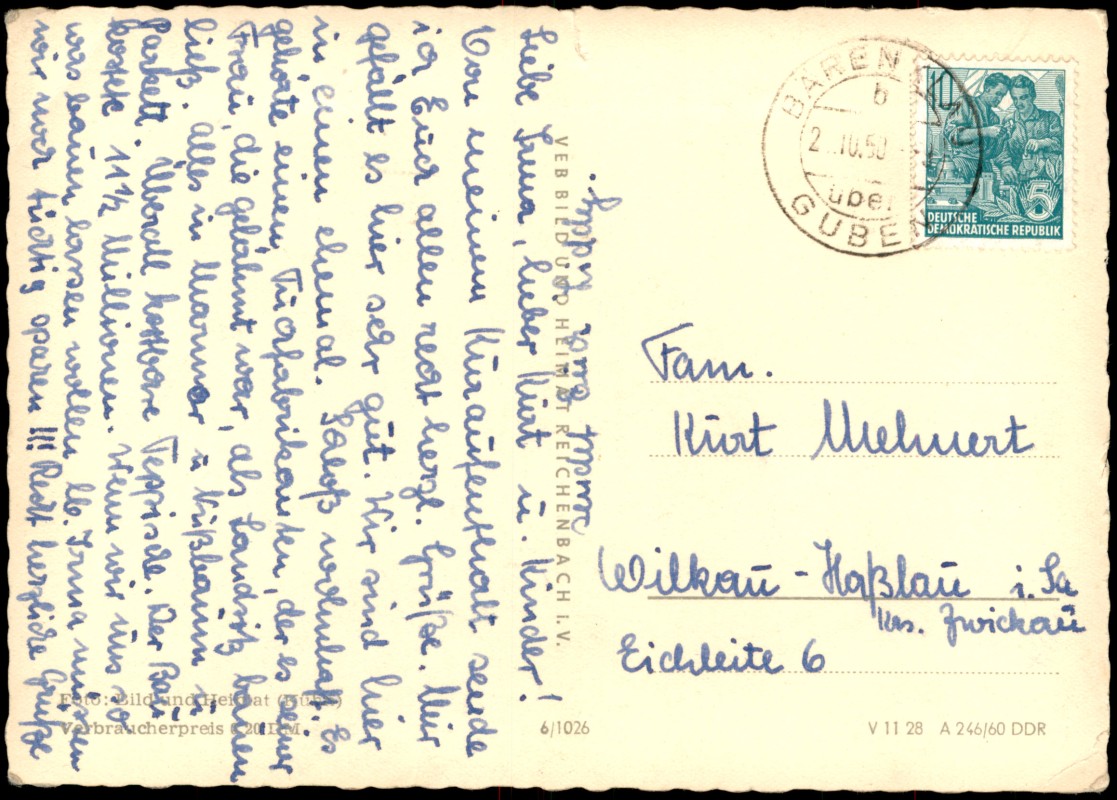 Liebe Irma, lieber Kurt u. Kinder!
Von meinem Kuraufenthalt sende
ich Euch allen recht herzl. Grüße. Mir
gefällt es hier sehr gut. Wir sind hier
in einem ehemal. Schloß wohnhaft. Es
gehörte einem Tuchfabrikanten, der es seiner
Frau, die gelähmt war, als Landsitz bauen
ließ. alles in Marmor u. Nußbaum u.
Parkett. Überall kostbare Teppiche. Der Bau
kostete 1 1/2 Millionen. Wenn wir uns so
was bauen lassen wollen lb. Irma müssen
wir noch tüchtig sparen!!! Recht herzliche Grüße
VEB BILD UND HEIMAT REICHENBACH I. V.
BÄRENKLAU
b
2.10.60
über
GUBEN
10
5
DEUTSCHE
DEMOKRATISCHE REPUBLIK
Fam.
Kurt Mehnert
Wilkau-Haßlau i. Sa
Krs. Zwickau
Eichleite 6
Foto: Bild und Heimat
Verbraucherpreis 0,20 DM
6/1026
V 11 28 A 246/60 DDR